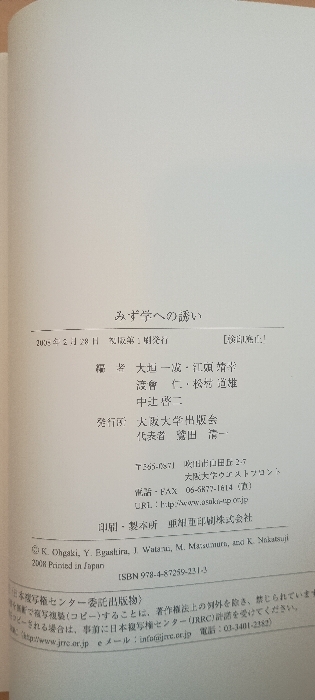 みず学への誘い
2008年2月28日 初版第1刷発行 [検印廃止]
編 者 大垣 一成・江頭 靖幸
渡會 仁・松村 道雄
中辻 啓二
発行所 大阪大学出版会
代表者 鷲田 清一
〒565-0871 吹田市山田丘2-7
大阪大学ウエストフロント
電話・FAX 06-6877-1614(直)
URL:http://www.osaka-up.or.jp
印刷・製本所 亜細亜印刷株式会社
© K. Ohgaki, Y. Egashira, J. Watarai, M. Matsumura, and K. Nakatsuji
2008 Printed in Japan
ISBN 978-4-87259-231-3
日本複写権センター委託出版物〉
を無断で複写複製(コピー)することは、著作権法上の例外を除き、禁じられています
コピーされる場合は、事前に日本複写権センター(JRRC)の許諾を受けてください。
http://www.jrrc.or.jp eメール:info@jrrc.or.jp 電話:03-3401-2382)